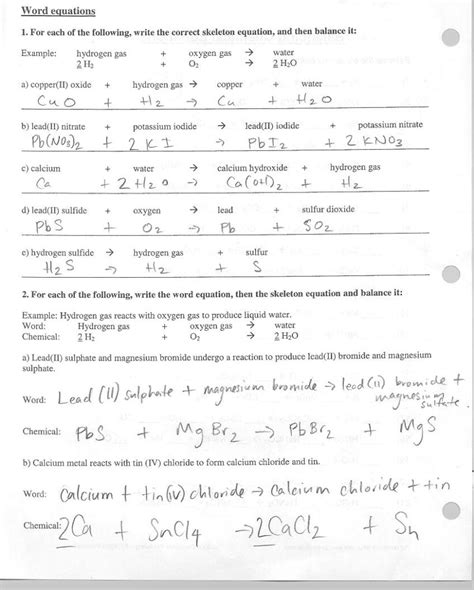 Word equations
1. For each of the following, write the correct skeleton equation, and then balance it:
Example: hydrogen gas + oxygen gas → water
2 H₂ + O₂ → 2 H₂O
a) copper(II) oxide + hydrogen gas → copper + water
CuO + H₂ → Cu + H₂O
b) lead(II) nitrate + potassium iodide → lead(II) iodide + potassium nitrate
Pb(NO₃)₂ + 2 KI → PbI₂ + 2 KNO₃
c) calcium + water → calcium hydroxide + hydrogen gas
Ca + 2 H₂O → Ca(OH)₂ + H₂
d) lead(II) sulfide + oxygen → lead + sulfur dioxide
PbS + O₂ → Pb + SO₂
e) hydrogen sulfide → hydrogen gas + sulfur
H₂S → H₂ + S
2. For each of the following, write the word equation, then the skeleton equation and balance it:
Example: Hydrogen gas reacts with oxygen gas to produce liquid water.
Word: Hydrogen gas + oxygen gas → water
Chemical: 2 H₂ + O₂ → 2 H₂O
a) Lead(II) sulphate and magnesium bromide undergo a reaction to produce lead(II) bromide and magnesium
sulphate.
Word: Lead (II) sulphate + magnesium bromide → lead(II) bromide +
magnesium sulfate.
Chemical: PbS + MgBr₂ → PbBr₂ + MgS
b) Calcium metal reacts with tin (IV) chloride to form calcium chloride and tin.
Word: Calcium + tin(IV) chloride → Calcium chloride + tin
Chemical: 2Ca + SnCl4 → 2CaCl₂ + Sn